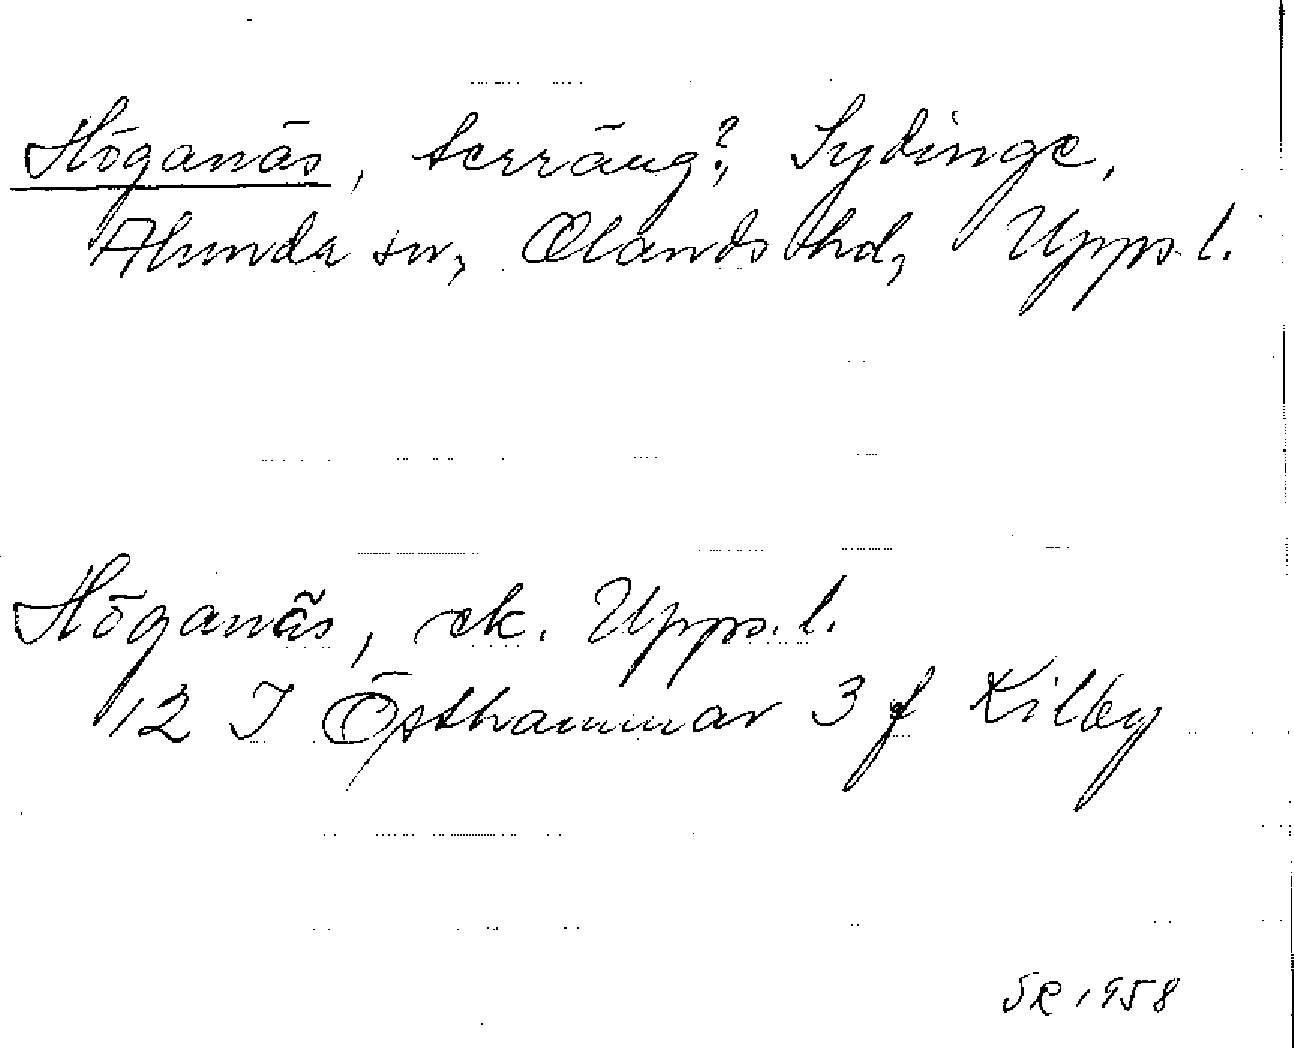 Höganäs, terräng?, Sydinge,
Alunda sn, Olands hd, Upps. l.
Höganäs, ek. Upps. l.
12 I Östhammar 3 f Kilby
SR 1958